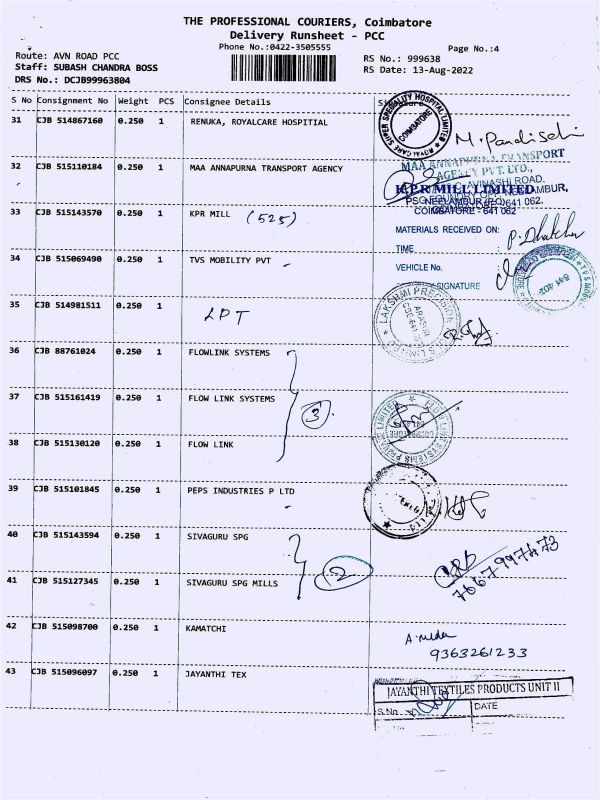 THE PROFESSIONAL COURIERS, Coimbatore
Delivery Runsheet - PCC
Phone No.:0422-3505555
Page No.:4
Route: AVN ROAD PCC
Staff: SUBASH CHANDRA BOSS
DRS No.: DCJB99963804
RS No.: 999638
RS Date: 13-Aug-2022
S No Consignment No Weight PCS Consignee Details
31 CJB 514867160 0.250 1 RENUKA, ROYALCARE HOSPITIAL
COIMBATORE
M. Pandiselvi
32 CJB 515110184 0.250 1 MAA ANNAPURNA TRANSPORT AGENCY
MAA ANNAPURNA TRANSPORT
AGENCY PVT. LTD.,
AVINASHI ROAD,
K.P.R MILL LIMITED
NEELAMBUR (P.O)
COIMBATORE - 641 062
33 CJB 515143570 0.250 1 KPR MILL (525)
MATERIALS RECEIVED ON:
TIME
VEHICLE No.
SIGNATURE
34 CJB 515069490 0.250 1 TVS MOBILITY PVT
35 CJB 514981511 0.250 1 LPT
LAKSHMI PRECISION
ARASUR
36 CJB 88761024 0.250 1 FLOWLINK SYSTEMS
37 CJB 515161419 0.250 1 FLOW LINK SYSTEMS
3
38 CJB 515130120 0.250 1 FLOW LINK
39 CJB 515101845 0.250 1 PEPS INDUSTRIES P LTD
40 CJB 515143594 0.250 1 SIVAGURU SPG
2
7667997473
41 CJB 515127345 0.250 1 SIVAGURU SPG MILLS
42 CJB 515098700 0.250 1 KAMATCHI
9363261233
43 CJB 515096097 0.250 1 JAYANTHI TEX
JAYANTHI TEXTILES PRODUCTS UNIT II
S.No
DATE